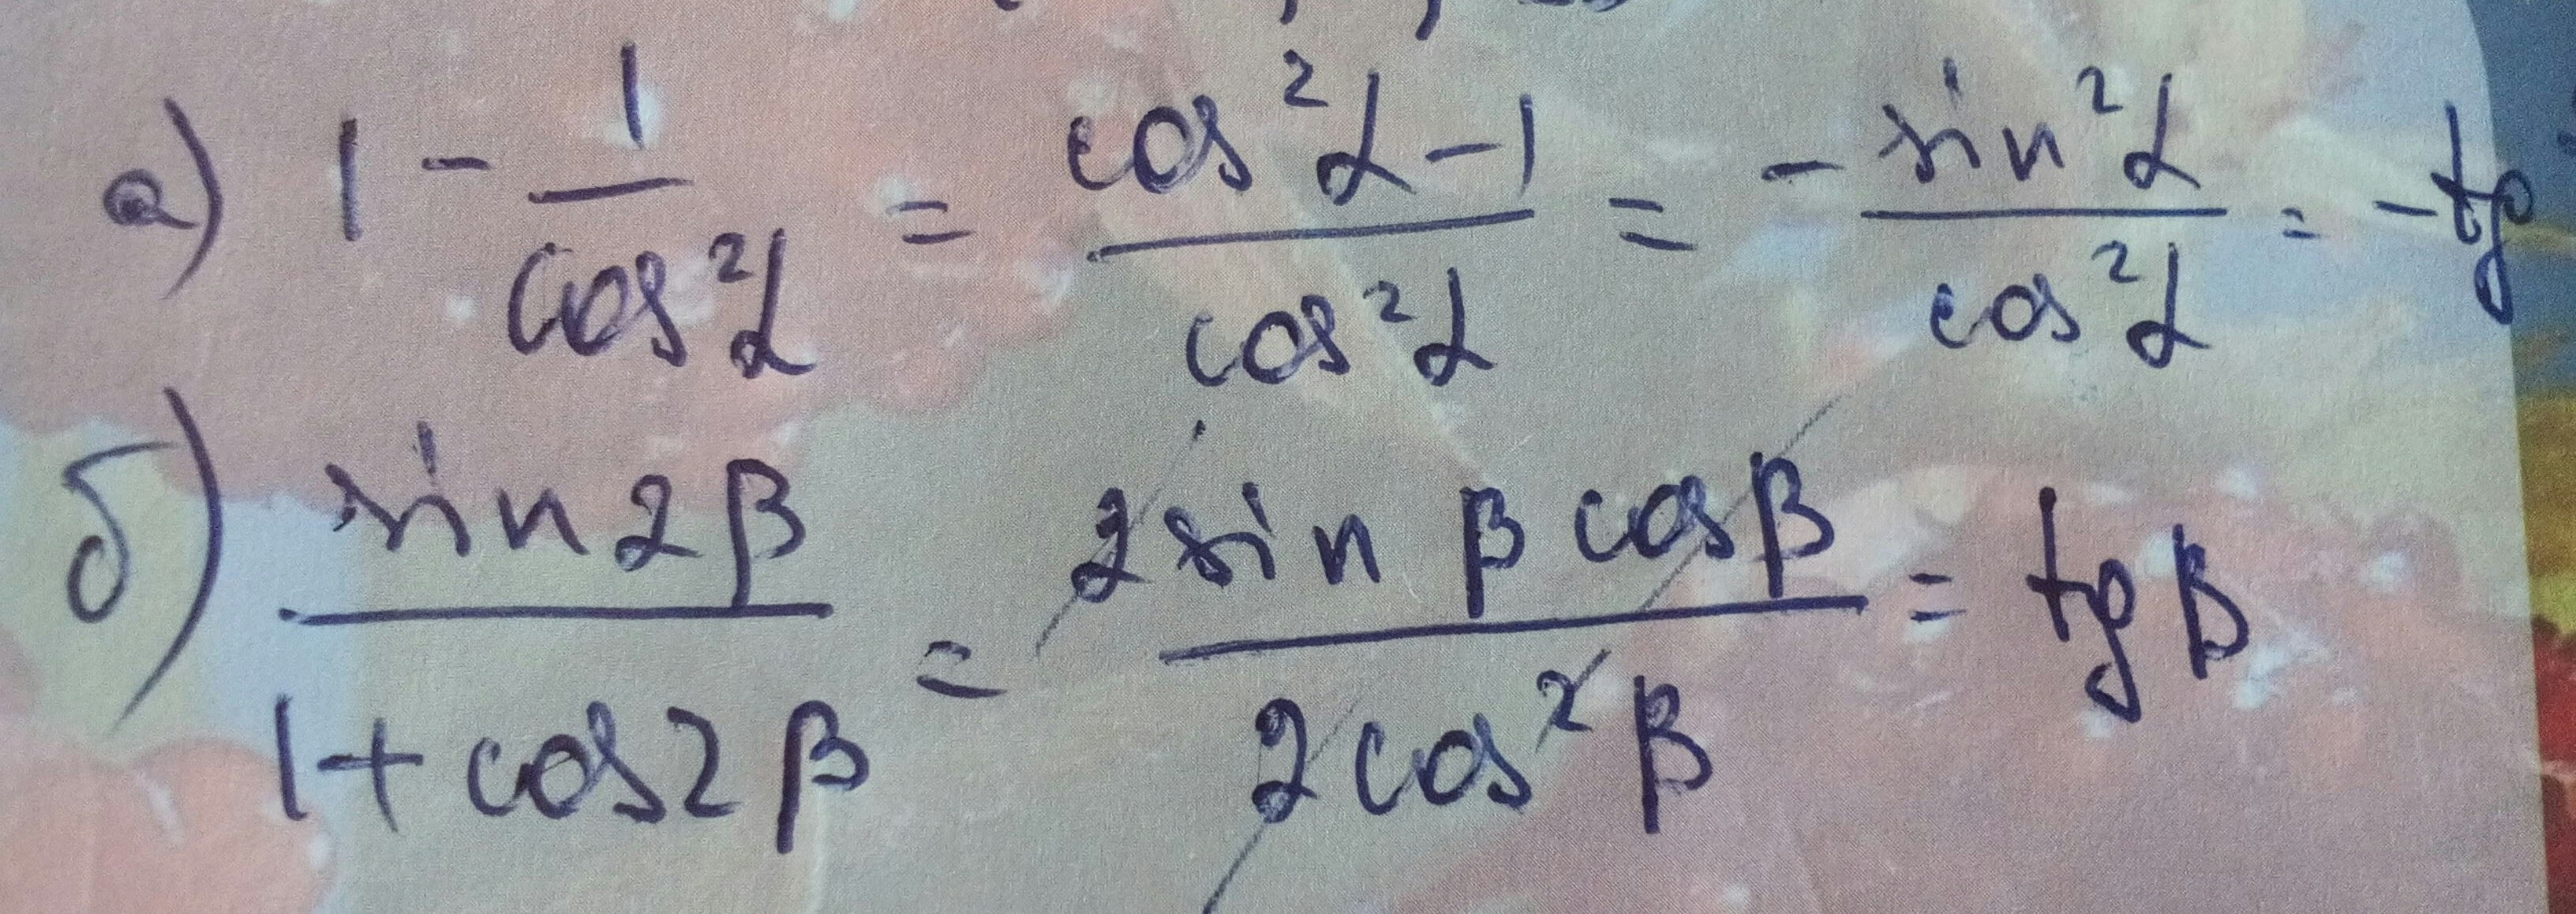 а) 1 - 1/cos²α = (cos²α - 1)/cos²α = - sin²α/cos²α = -tg
б) sin2β/(1 + cos2β) = 2sinβcosβ/2cos²β = tgβ